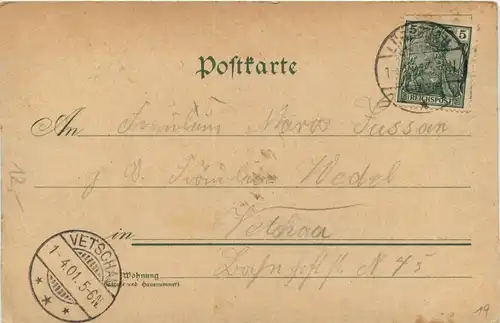 5
REICHSPOST
Postkarte
An Fräulein Marie Jussan
Fräulein Wedel
in Vetschau
Wohnung
(Straße und Hausnummer)
Bahnhofst. N 45
VETSCHAU
1-4.01.5-6N.
12.-
19